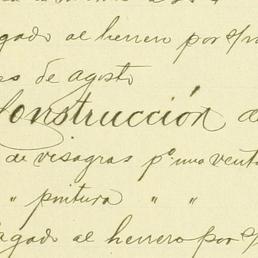 agado al herrero por s/m
es de agosto
Construcción d
de visagras pa. una vent
" pintura " "
agado al herrero por s/